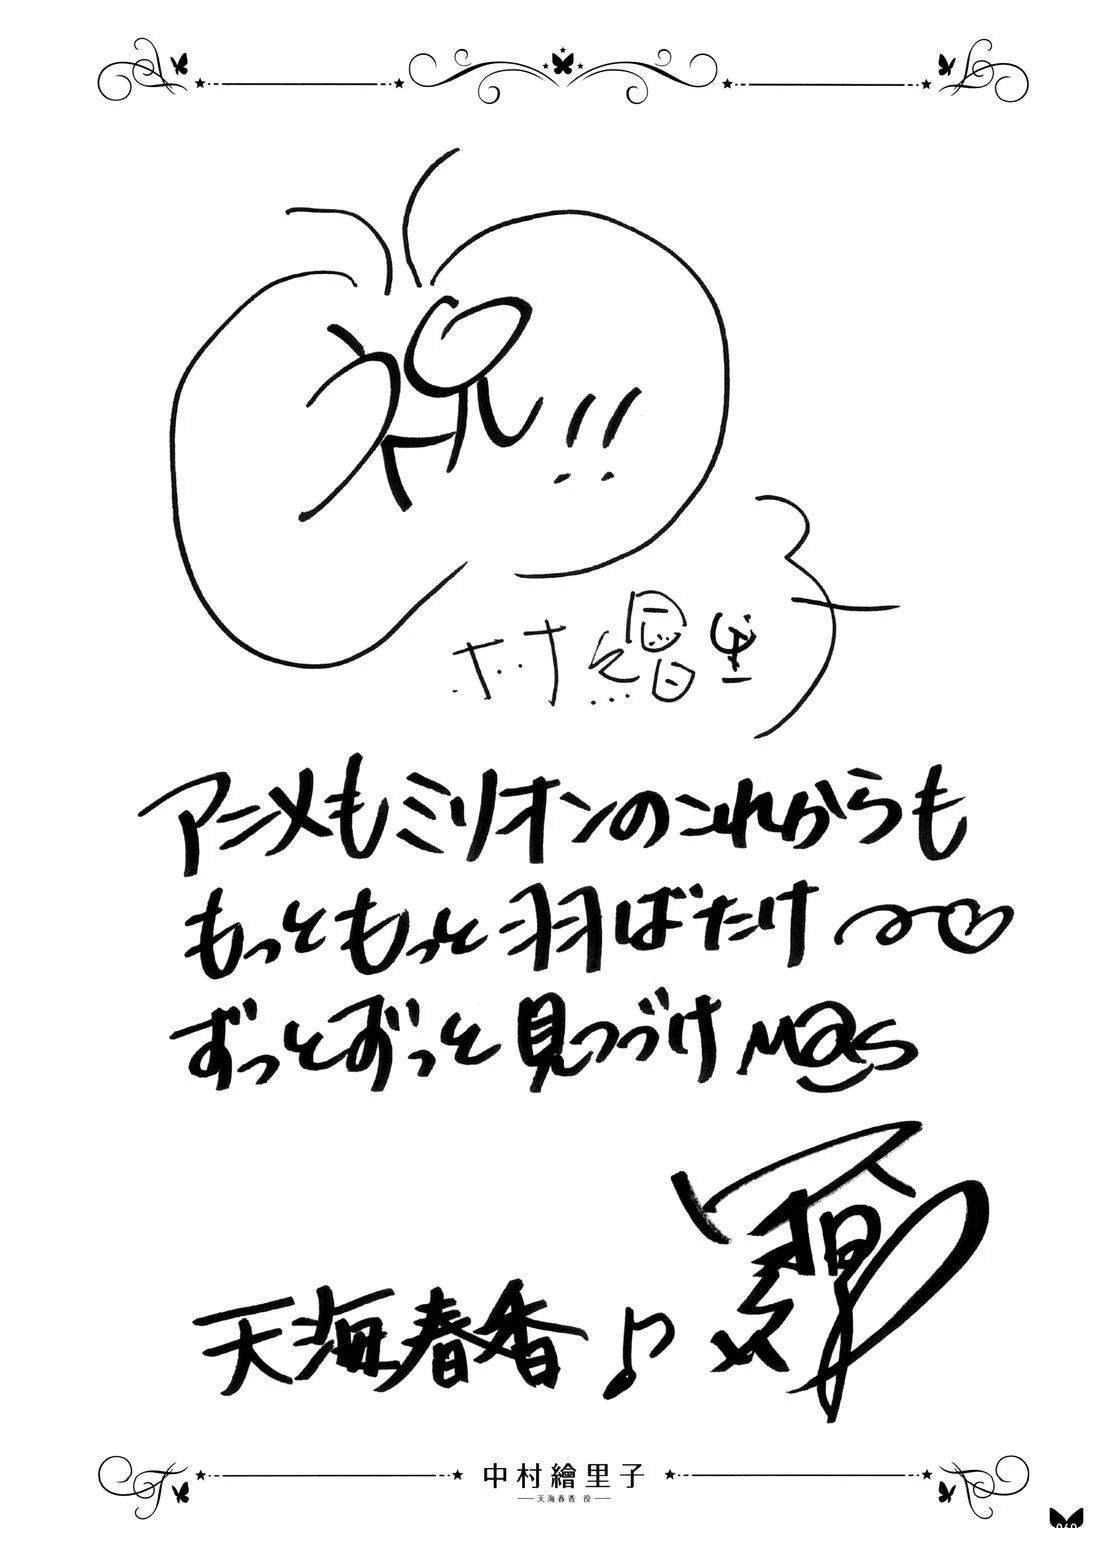 祝!!
中村繪里子
アニメもミリオンのこれからも
もっともっと羽ばたけ〜♡
ずっとずっと見つづけM@S
天海春香♪
中村繪里子
天海春香 役
060